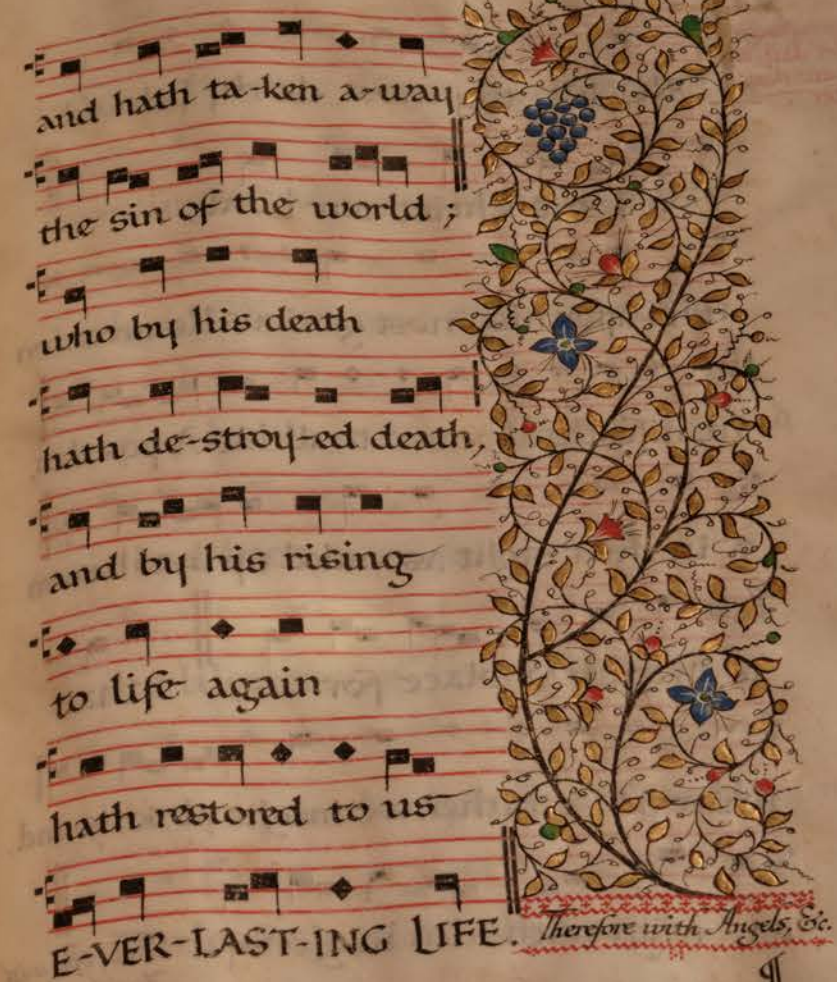 and hath ta-ken a-way
the sin of the world ;
who by his death
hath de-stroy-ed death,
and by his rising
to life again
hath restored to us
E-VER-LAST-ING LIFE.
Therefore with Angels, &c.
¶